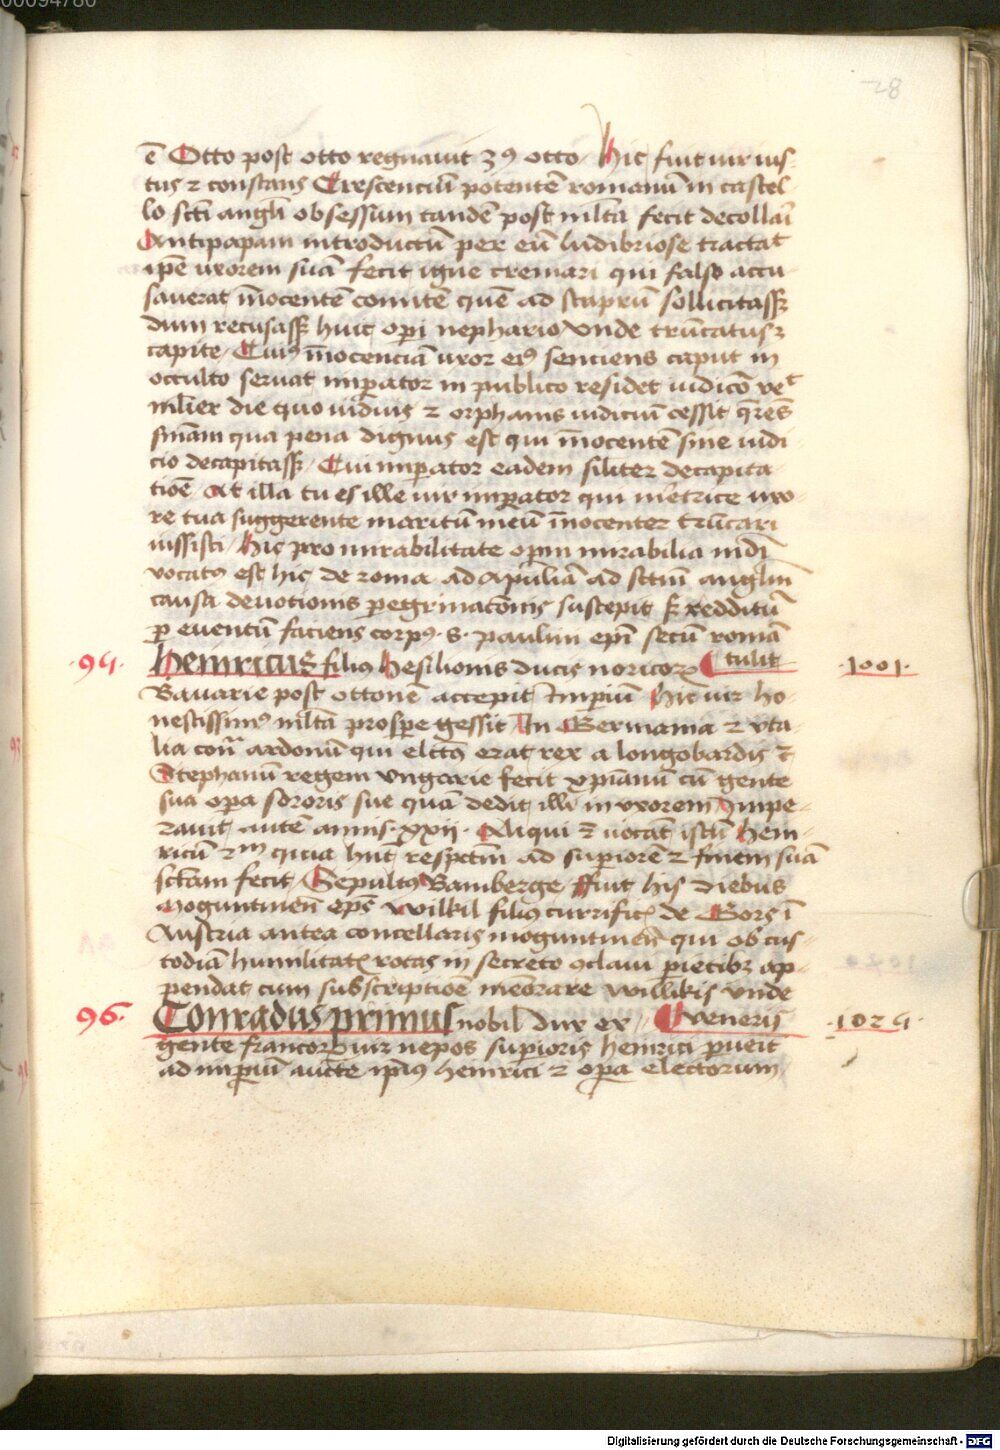 00094780
28
ē Otto post otto regnavit 3ꝰ otto Hic fuit vir ius-
tus ⁊ constans Crescenciū potentē romanū in castel-
lo scti angli obsessum tandē post mlta fecit decollari
Antipapam introductū per eū ludibriose tractat
ipe uxorem suā fecit igne cremari qui falso accu-
saverat īnocentē comitē quē ad stuprū sollicitasset
dum recusasset huic opi nephario vnde trūcatus ⁊
capite Cuiꝰ īnocenciā uxor eiꝰ senciens caput in
occulto servat imperator in publico residet iudico vet
mlier die quo viduis ⁊ orphanis iudiciū cessit q̄rēs
sniam qua pena dignus est qui īnocentē sine iudi-
cio decapitasset Cui imperator eadem siliter decapita-
tiōe At illa tu es ille vir imperator qui metrice uxo-
re tua suggerente maritū meū īnocenter trūcari
iussisti Hic pro mirabilitate operum mirabilia mūdi
vocatꝰ est hic de roma ad apuliā ad sctm anglm
causa devotionis peregrinacōnis suscepit ꝑ redditū
ꝑ eventū faciens corpꝰ S. paulini epi secū romā
tulit
·95· Heinricus filiꝰ Hesilionis ducis noricorꝝ ·1001·
Bavarie post ottonē accepit Impiū Hic vir ho-
nestissimꝰ mlta prospe gessit In Germania ⁊ yta-
lia cont̄ ardonū qui elctꝰ erat rex a longobardis ⁊
Stephanū regem vngarie fecit xpianū cū gente
sua opa sororis sue quā dedit illi in vxorem Impe-
ravit autē annis xxii· Aliqui ⁊ vocāt istū Hein-
ricū ⁊m quia hnt respctm ad supiorē ⁊ finem suā
sctam fecit Sepultꝰ Bamberge ffuit his diebus
Moguntineñ eps Wilkil filiꝰ currificꝭ de Gors ī
Austria antea concellariꝰ moguntineñ qui ob cus-
todiā humilitatꝭ rotas in secreto ꝯclavi pietibꝫ ap-
pendat cum subscriptiōe memorare willikis vnde
96· Conradus primus nobil dux ex veneris ·1025·
gente francorꝝ vir nepos supioris heinrici pueīt
ad impiū aucte ipiꝰ heinrici ⁊ opa electorum
Digitalisierung gefördert durch die Deutsche Forschungsgemeinschaft - DFG